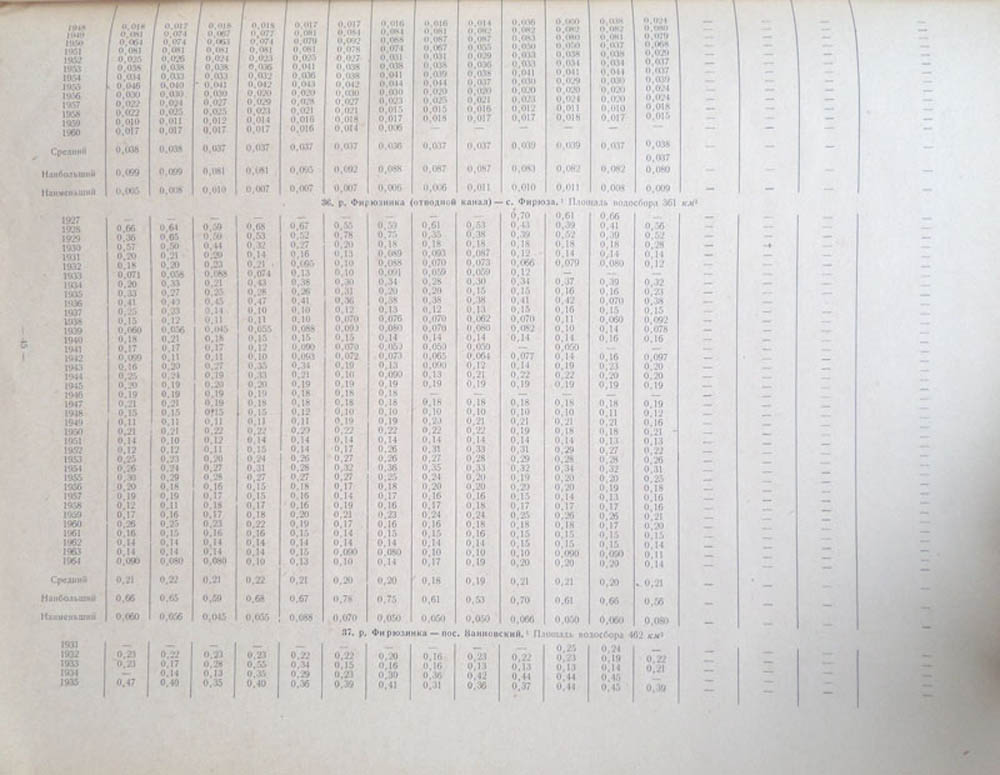 1948 0,018 0,017 0,018 0,018 0,017 0,017 0,016 0,016 0,014 0,036 0,060 0,038 0,024 — — — —
1949 0,081 0,074 0,067 0,077 0,081 0,084 0,084 0,081 0,082 0,082 0,082 0,082 0,080 — — — —
1950 0,064 0,074 0,063 0,074 0,079 0,092 0,088 0,087 0,087 0,083 0,080 0,081 0,079 — — — —
1951 0,081 0,081 0,081 0,081 0,081 0,078 0,074 0,067 0,055 0,050 0,050 0,037 0,068 — — — —
1952 0,025 0,026 0,024 0,023 0,025 0,027 0,031 0,031 0,029 0,033 0,038 0,038 0,029 — — — —
1953 0,038 0,038 0,038 0,036 0,041 0,038 0,038 0,038 0,036 0,033 0,034 0,034 0,037 — — — —
1954 0,034 0,033 0,033 0,032 0,036 0,038 0,041 0,039 0,038 0,041 0,041 0,044 0,037 — — — —
1955 0,046 0,040 0,041 0,042 0,043 0,042 0,044 0,044 0,037 0,030 0,029 0,030 0,039 — — — —
1956 0,030 0,030 0,030 0,020 0,020 0,030 0,030 0,020 0,020 0,020 0,020 0,020 0,024 — — — —
1957 0,022 0,024 0,027 0,029 0,028 0,027 0,023 0,025 0,021 0,023 0,024 0,020 0,024 — — — —
1958 0,022 0,025 0,025 0,021 0,021 0,021 0,015 0,015 0,016 0,012 0,011 0,010 0,018 — — — —
1959 0,010 0,011 0,012 0,014 0,016 0,018 0,017 0,018 0,017 0,017 0,018 0,017 0,015 — — — —
1960 0,017 0,017 0,017 0,017 0,016 0,014 0,006 — — — — — — — — — —
Средний 0,038 0,038 0,037 0,037 0,037 0,037 0,036 0,037 0,037 0,039 0,039 0,037 0,038 — — — —
0,037
Наибольший 0,099 0,099 0,081 0,081 0,095 0,092 0,088 0,087 0,087 0,083 0,082 0,082 0,080 — — — —
Наименьший 0,005 0,008 0,010 0,007 0,007 0,007 0,006 0,006 0,011 0,010 0,011 0,008 0,009 — — — —
36. р. Фирюзинка (отводной канал) — с. Фирюза.¹ Площадь водосбора 361 км²
1927 — — — — — — — — — 0,70 0,61 0,66 — — — — —
1928 0,66 0,64 0,59 0,68 0,67 0,55 0,59 0,61 0,53 0,43 0,39 0,41 0,56 — — — —
1929 0,36 0,65 0,50 0,53 0,52 0,78 0,75 0,35 0,38 0,39 0,52 0,39 0,52 — — — —
1930 0,57 0,50 0,44 0,32 0,27 0,20 0,18 0,18 0,18 0,18 0,18 0,18 0,28 — — — —
1931 0,20 0,21 0,20 0,14 0,16 0,13 0,089 0,093 0,087 0,12 0,14 0,14 0,14 — — — —
1932 0,18 0,20 0,23 0,21 0,095 0,10 0,088 0,070 0,073 0,066 0,079 0,080 0,12 — — — —
1933 0,071 0,058 0,088 0,074 0,13 0,10 0,091 0,059 0,059 0,12 — — — — — — —
1934 0,20 0,33 0,21 0,43 0,38 0,30 0,34 0,28 0,30 0,34 0,37 0,39 0,32 — — — —
1935 0,33 0,27 0,25 0,28 0,26 0,31 0,20 0,20 0,15 0,15 0,16 0,16 0,23 — — — —
1936 0,41 0,43 0,45 0,47 0,41 0,36 0,38 0,38 0,38 0,41 0,42 0,070 0,38 — — — —
1937 0,25 0,23 0,14 0,10 0,10 0,12 0,13 0,12 0,13 0,15 0,16 0,15 0,15 — — — —
1938 0,15 0,12 0,11 0,11 0,10 0,070 0,076 0,070 0,062 0,070 0,11 0,060 0,092 — — — —
1939 0,060 0,056 0,045 0,055 0,088 0,090 0,080 0,070 0,080 0,082 0,10 0,14 0,078 — — — —
1940 0,18 0,21 0,18 0,15 0,15 0,15 0,14 0,14 0,14 0,14 0,14 0,16 0,16 — — — —
1941 0,17 0,17 0,17 0,12 0,090 0,070 0,050 0,050 0,050 — 0,050 — — — — — —
1942 0,099 0,11 0,11 0,10 0,093 0,072 0,073 0,065 0,064 0,077 0,14 0,16 0,097 — — — —
1943 0,16 0,20 0,27 0,35 0,34 0,19 0,13 0,090 0,12 0,14 0,19 0,23 0,20 — — — —
1944 0,25 0,24 0,19 0,33 0,21 0,10 0,090 0,13 0,21 0,22 0,22 0,20 0,20 — — — —
1945 0,20 0,19 0,20 0,20 0,19 0,19 0,19 0,19 0,19 0,19 0,19 0,19 0,19 — — — —
1946 0,19 0,19 0,19 0,19 0,18 0,18 0,18 — — — — — — — — — —
1947 0,21 0,21 0,19 0,18 0,18 0,18 0,18 0,18 0,18 0,18 0,18 0,18 0,19 — — — —
1948 0,15 0,15 0,15 0,15 0,12 0,10 0,10 0,10 0,10 0,10 0,10 0,11 0,12 — — — —
1949 0,11 0,11 0,11 0,11 0,11 0,19 0,19 0,20 0,21 0,21 0,21 0,21 0,16 — — — —
1950 0,21 0,21 0,22 0,22 0,29 0,22 0,22 0,22 0,22 0,19 0,18 0,18 0,21 — — — —
1951 0,14 0,10 0,12 0,14 0,14 0,14 0,14 0,14 0,14 0,14 0,14 0,13 0,13 — — — —
1952 0,12 0,12 0,11 0,15 0,14 0,17 0,26 0,31 0,33 0,31 0,29 0,27 0,22 — — — —
1953 0,25 0,23 0,20 0,24 0,26 0,27 0,26 0,27 0,28 0,29 0,28 0,28 0,26 — — — —
1954 0,26 0,24 0,27 0,31 0,28 0,32 0,36 0,35 0,33 0,32 0,34 0,32 0,31 — — — —
1955 0,30 0,29 0,28 0,27 0,27 0,27 0,25 0,24 0,20 0,19 0,20 0,20 0,25 — — — —
1956 0,20 0,18 0,16 0,15 0,18 0,17 0,18 0,20 0,20 0,20 0,20 0,19 0,18 — — — —
1957 0,19 0,19 0,17 0,15 0,16 0,14 0,17 0,16 0,16 0,15 0,14 0,13 0,16 — — — —
1958 0,12 0,11 0,18 0,17 0,16 0,19 0,16 0,17 0,18 0,17 0,17 0,17 0,16 — — — —
1959 0,17 0,16 0,17 0,18 0,20 0,21 0,23 0,24 0,24 0,25 0,26 0,26 0,21 — — — —
1960 0,26 0,25 0,23 0,22 0,19 0,17 0,16 0,16 0,18 0,18 0,18 0,17 0,20 — — — —
1961 0,16 0,15 0,16 0,16 0,15 0,14 0,15 0,15 0,16 0,15 0,15 0,15 0,15 — — — —
1962 0,14 0,14 0,14 0,14 0,14 0,14 0,14 0,14 0,14 0,15 0,15 0,15 0,14 — — — —
1963 0,14 0,14 0,14 0,14 0,15 0,090 0,080 0,10 0,10 0,10 0,090 0,090 0,11 — — — —
1964 0,090 0,080 0,080 0,10 0,13 0,10 0,14 0,17 0,19 0,20 0,20 0,20 0,14 — — — —
Средний 0,21 0,22 0,21 0,22 0,21 0,20 0,20 0,18 0,19 0,21 0,21 0,20 0,21 — — — —
Наибольший 0,66 0,65 0,59 0,68 0,67 0,78 0,75 0,61 0,53 0,70 0,61 0,66 0,56 — — — —
Наименьший 0,060 0,056 0,045 0,055 0,088 0,070 0,050 0,050 0,050 0,066 0,050 0,060 0,080 — — — —
37. р. Фирюзинка — пос. Ванновский.¹ Площадь водосбора 462 км²
1931 — — — — — — — — — — 0,25 0,24 — — — — —
1932 0,23 0,22 0,23 0,23 0,22 0,22 0,20 0,16 0,23 0,22 0,23 0,19 0,22 — — — —
1933 0,23 0,17 0,28 0,55 0,34 0,15 0,16 0,16 0,13 0,13 0,13 0,14 0,21 — — — —
1934 — 0,14 0,13 0,35 0,29 0,23 0,30 0,36 0,42 0,44 0,44 0,45 — — — — —
1935 0,47 0,40 0,35 0,40 0,36 0,39 0,41 0,31 0,36 0,37 0,44 0,45 0,39 — — — —
— 45 —